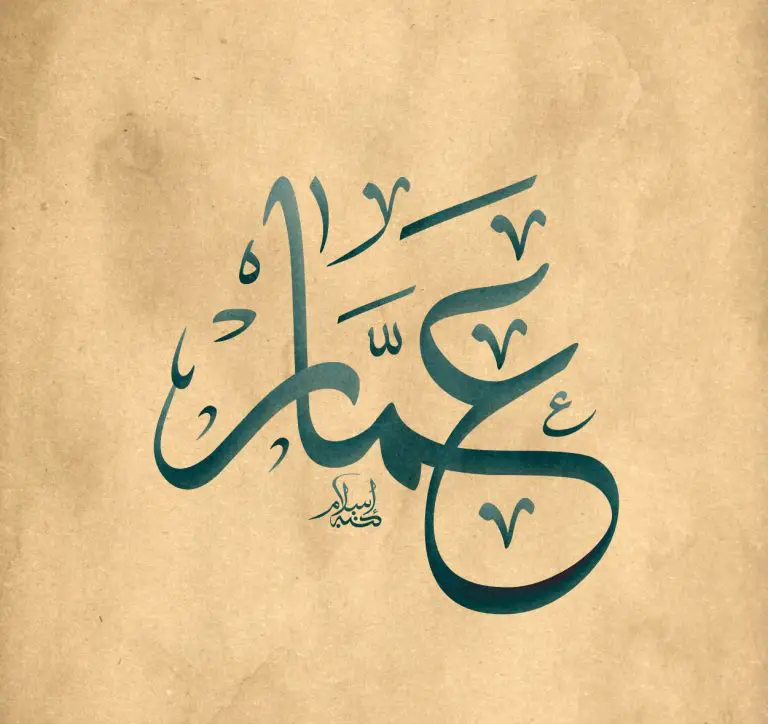 عَمَّار
كتبه إسلام